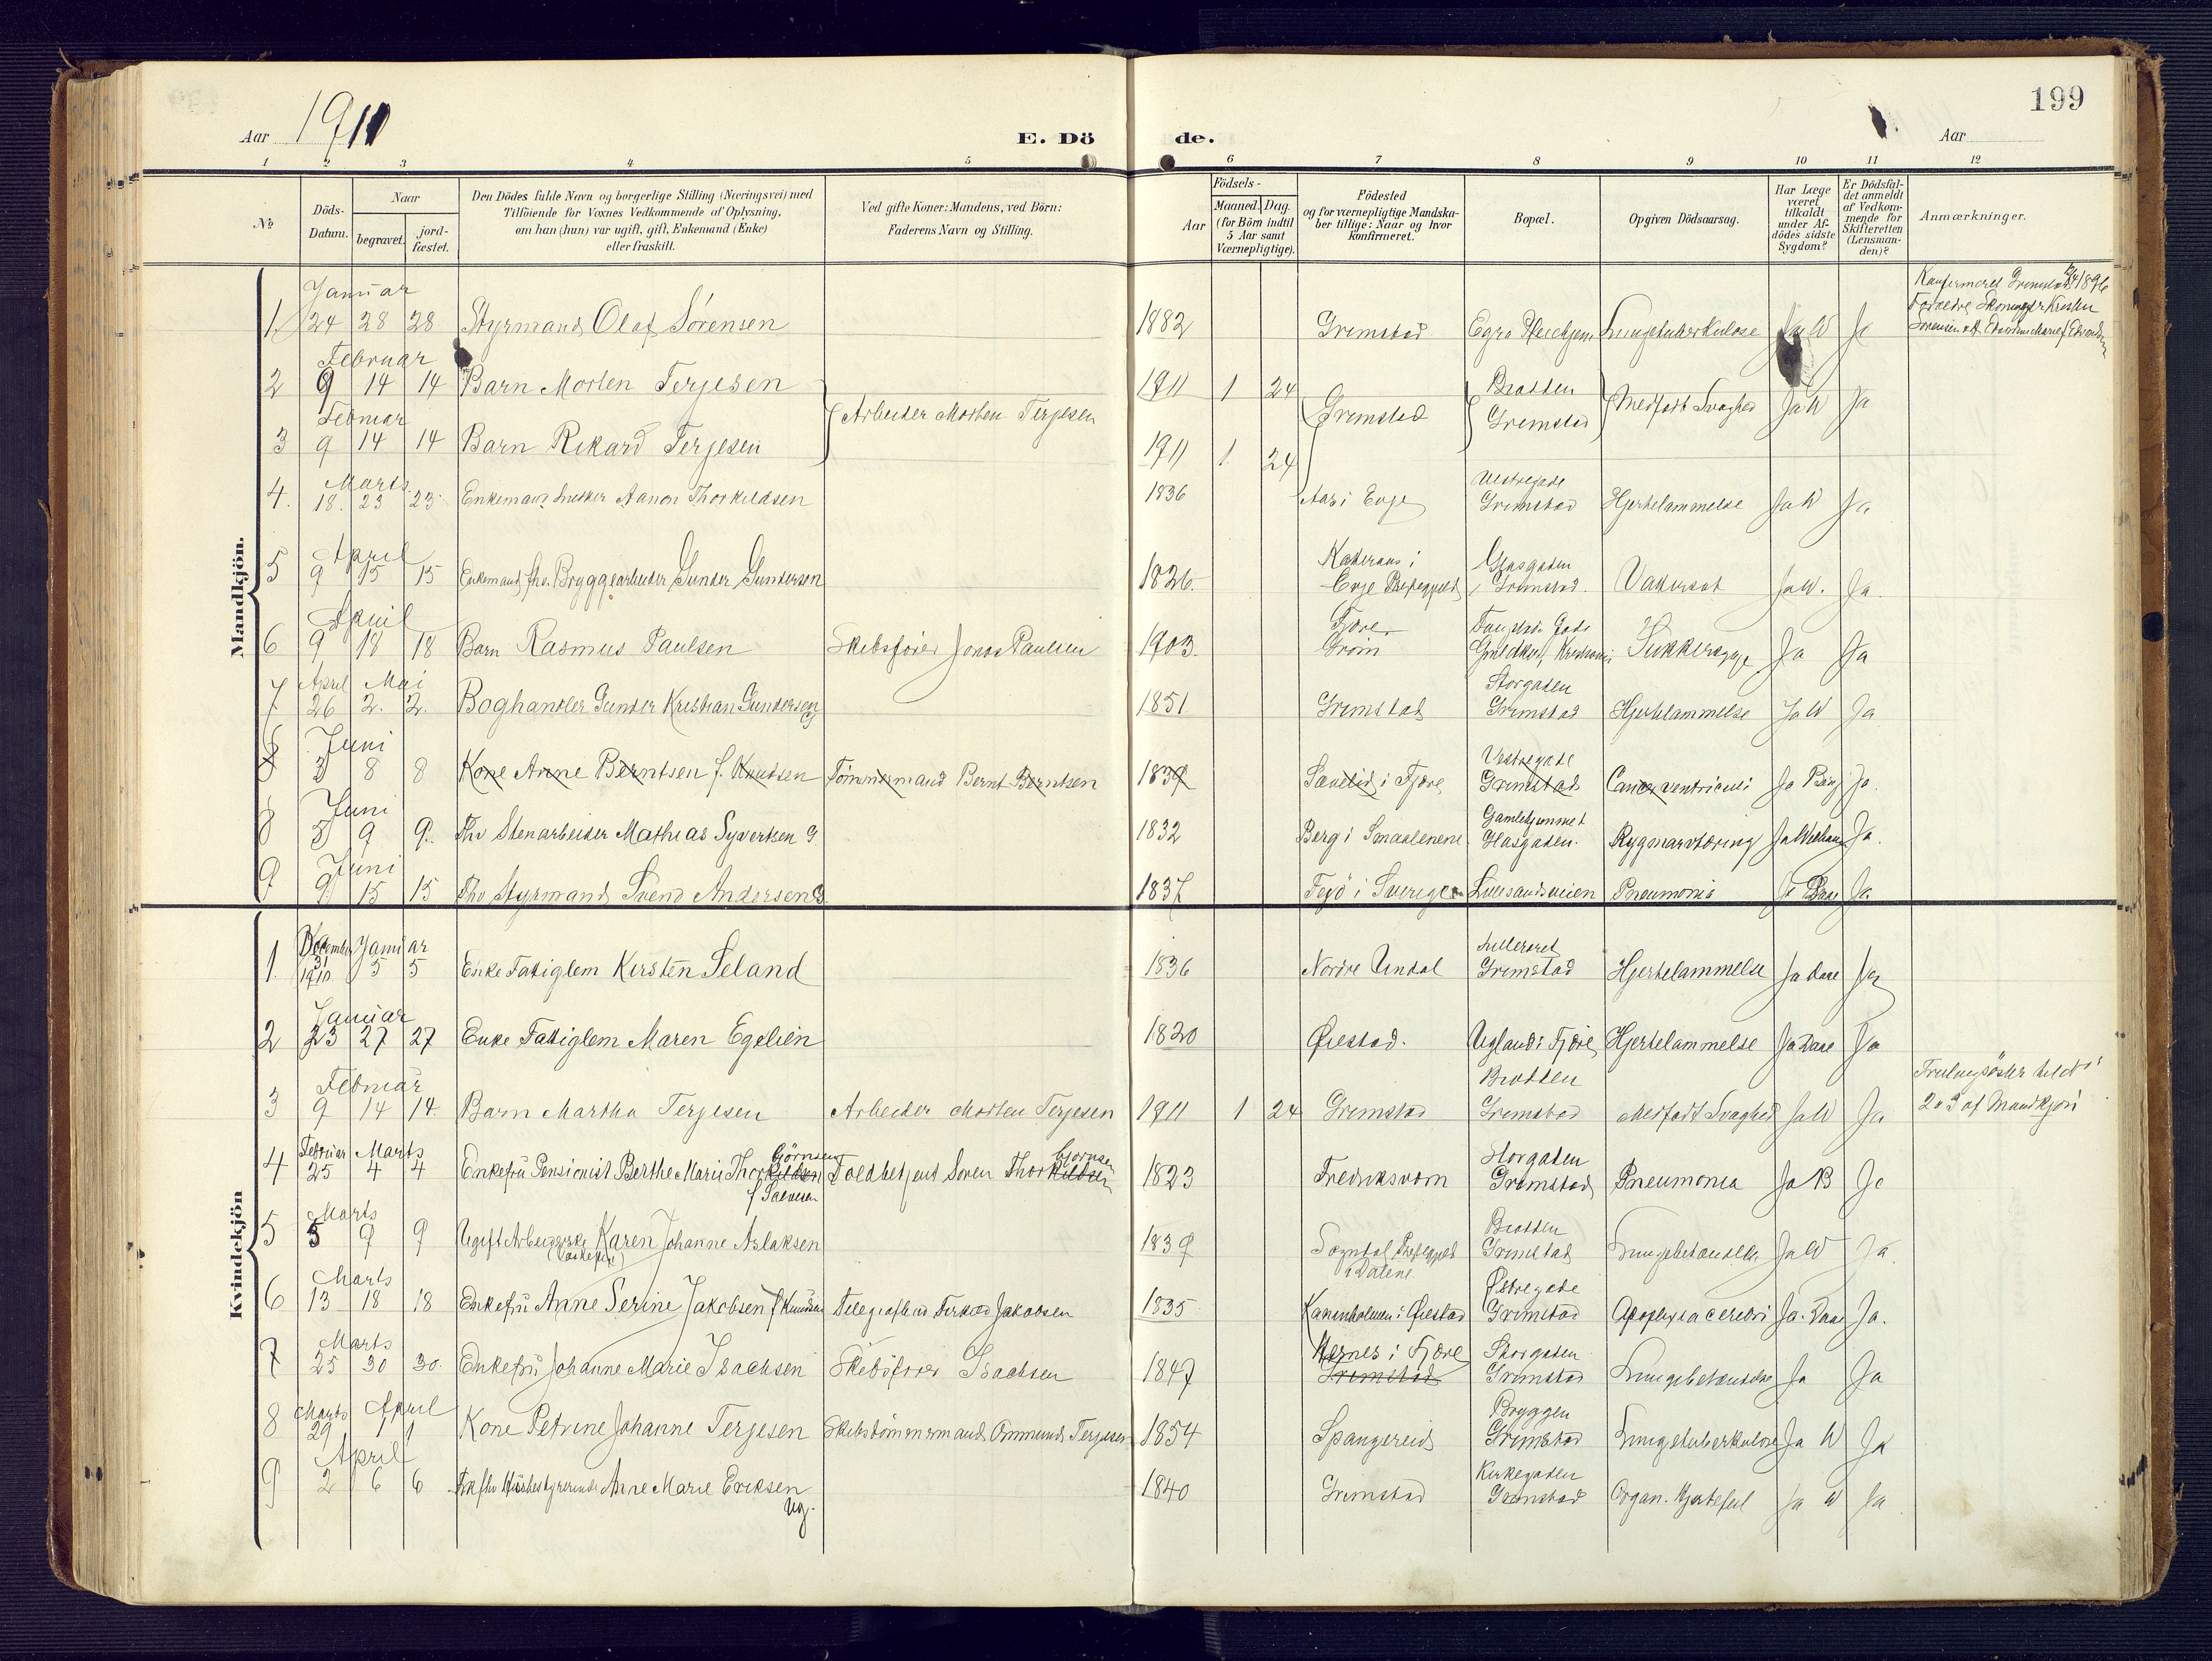 199
Aar 1911
E. Döde.
Aar
1 2 3 4 5 6 7 8 9 10 11 12
№
Döds-Datum.
Naar
begravet.
jord-fæstet.
Den Dödes fulde Navn og borgerlige Stilling (Næringsvei) med
Tilföiende for Voxnes Vedkommende af Oplysning,
om han (hun) var ugift, gift, Enkemand (Enke)
eller fraskilt.
Ved gifte Koner: Mandens, ved Börn:
Faderens Navn og Stilling.
Födsels-
Aar
Maaned. Dag.
(for Börn indtil
5 Aar samt
Værnepligtige).
Födested
og for værnepligtige Mandska-
ber tillige: Naar og hvor
Konfirmeret.
Bopæl.
Opgiven Dödsaarsag.
Har Læge
været
tilkaldt
under Af-
dödes sidste
Sygdom?
Er Dödsfal-
det anmeldt
af Vedkom-
mende for
Skifteretten
(Lensman-
den)?
Anmærkninger.
Mandkjön.
Januar
1. 24 28 28 Styrmand Olaf Sörensen 1882 Grimstad Lungetuberkulose Ja W Ja
Konfirmeret Grimstad 1896
Februar
2 9 14 14 Barn Morten Terjesen 1911 1 24
Februar
3 9 14 14 Barn Rikard Terjesen 1911 1 24
Arbeider Morten Terjesen Grimstad Bratten Grimstad Medfødt Svaghed Ja W Ja
Marts
4. 18. 23 23 Enkemand Aanon Thorkildsen 1836 Aas i Evje Vestregade Grimstad Hjertelammelse Ja W Ja
April
5 9 15 15 Enkemand fhv. Bryggearbeider Gunder Gundersen 1826. Evje Grimstad. Vattersot Ja W. Ja.
April
6 9 18 18 Barn Rasmus Paulsen Skibsfører Jonas Paulsen 1903. Fjære Sukkersyge Ja Ja
April Mai
7 26 2. 2. Boghandler Gunder Kristian Gundersen G 1851 Grimstad Storgaden Grimstad Hjertelammelse Ja W Ja
Juni
8 3 8 8 Kone Anne Berntsen f. Knudsen Tømmermand Bernt Berntsen 1839 i Fjære Vestregade Grimstad Cancer ventriculi Ja Ja.
Juni
8 5 9 9. Fhv Stenarbeider Mathias Syvertsen G 1832 Berg i Smaalenene Gamlehjemmet Hasgaden. Rygmarvtæring Ja Ja.
Juni
9 9 15 15 Fhv Styrmand Svend Andersen G. 1837 i Sverige Lillesandsveien Pneumonia Ja Ja.
Kvindekjön
December Januar
1 31 1910 5 5 Enke Fattiglem Kirsten Seland 1836 Nordre Undal Grimstad Hjertelammelse Ja Daae Ja
Januar
2 23 27 27 Enke Fattiglem Maren Egelien 1820 Øiestad. Ugland i Fjære Hjertelammelse Ja Daae Ja
Februar
3 9 14 14. Barn Martha Terjesen Arbeider Morten Terjesen 1911 1 24 Grimstad Bratten Grimstad Medfødt Svaghed Ja W Ja
Trillingsøster til No
2 o 3 af Mandkjøn
Februar Marts
4 25 4 4 Enkefru Pensionist Berthe Marie Thorkildsen Bjørnsen Toldbetjent Søren Thorkildsen Bjørnsen 1823 Fredriksværn Storgaden Grimstad Pneumonia Ja B Ja
Marts
5 5 9 9 Ugift Arbeiderske Karen Johanne Aslaksen 1839 Sogndal Præstegjeld i Dalene Bratten Grimstad Lungebetændelse Ja W Ja
Marts
6 13 18 18 Enkefru Anne Serine Jakobsen f Knudsen Jakobsen 1835 i Øiestad Østregade Grimstad Apoplexia cerebri Ja. Daae Ja.
Marts
7 25 30 30. Enkefru Johanne Marie Isachsen Skibsfører Isachsen 1847 i Fjære Grimstad Storgaden Grimstad Lungebetændelse Ja Ja
Marts April
8 29 1 1 Kone Petrine Johanne Terjesen Skibstømmermand Ommund Terjesen 1854 Spangereid Bryggen Grimstad Lungetuberkulose Ja W Ja
April
9 2 6 6 Anne Marie Eriksen ug. 1840 Grimstad Kirkegaden Grimstad Organ. Hjertefeil Ja W Ja